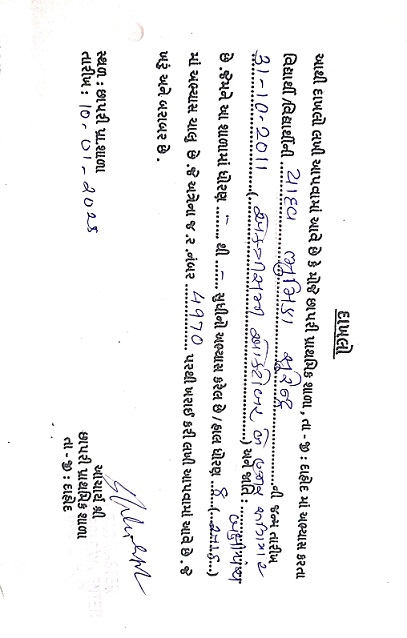 દાખલો
આથી દાખલો લખી આપવામાં આવે છે કે મોજે છાપરી પ્રાથમિક શાળા, તા - જી : દાહોદ માં અભ્યાસ કરતા
વિદ્યાર્થી /વિદ્યાર્થીની યાદવ ભુમિકા સુરેન્દ્ર ની જન્મ તારીખ
31-10-2011 ( એકત્રીસમી ઓક્ટોબર બે હજાર અગિયાર ) અને જાતિ : બક્ષીપંચ
છે .જેમને આ શાળામાં ધોરણ - થી - સુધીનો અભ્યાસ કરેલ છે / હાલ ધોરણ 8 (આઠ)
માં અભ્યાસ ચાલુ છે .જે અત્રેના જ . ર .નંબર 4970 પરથી ખરાઈ કરી લખી આપવામાં આવે છે . જે
ખરું અને બરાબર છે .
સ્થળ : છાપરી પ્રા.શાળા
તારીખ : 10-01-2025
આચાર્ય શ્રી
છાપરી પ્રાથમિક શાળા
તા - જી : દાહોદ